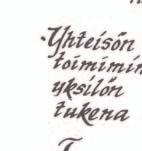 ·Yhteisön
toimimin
yksilön
tukena